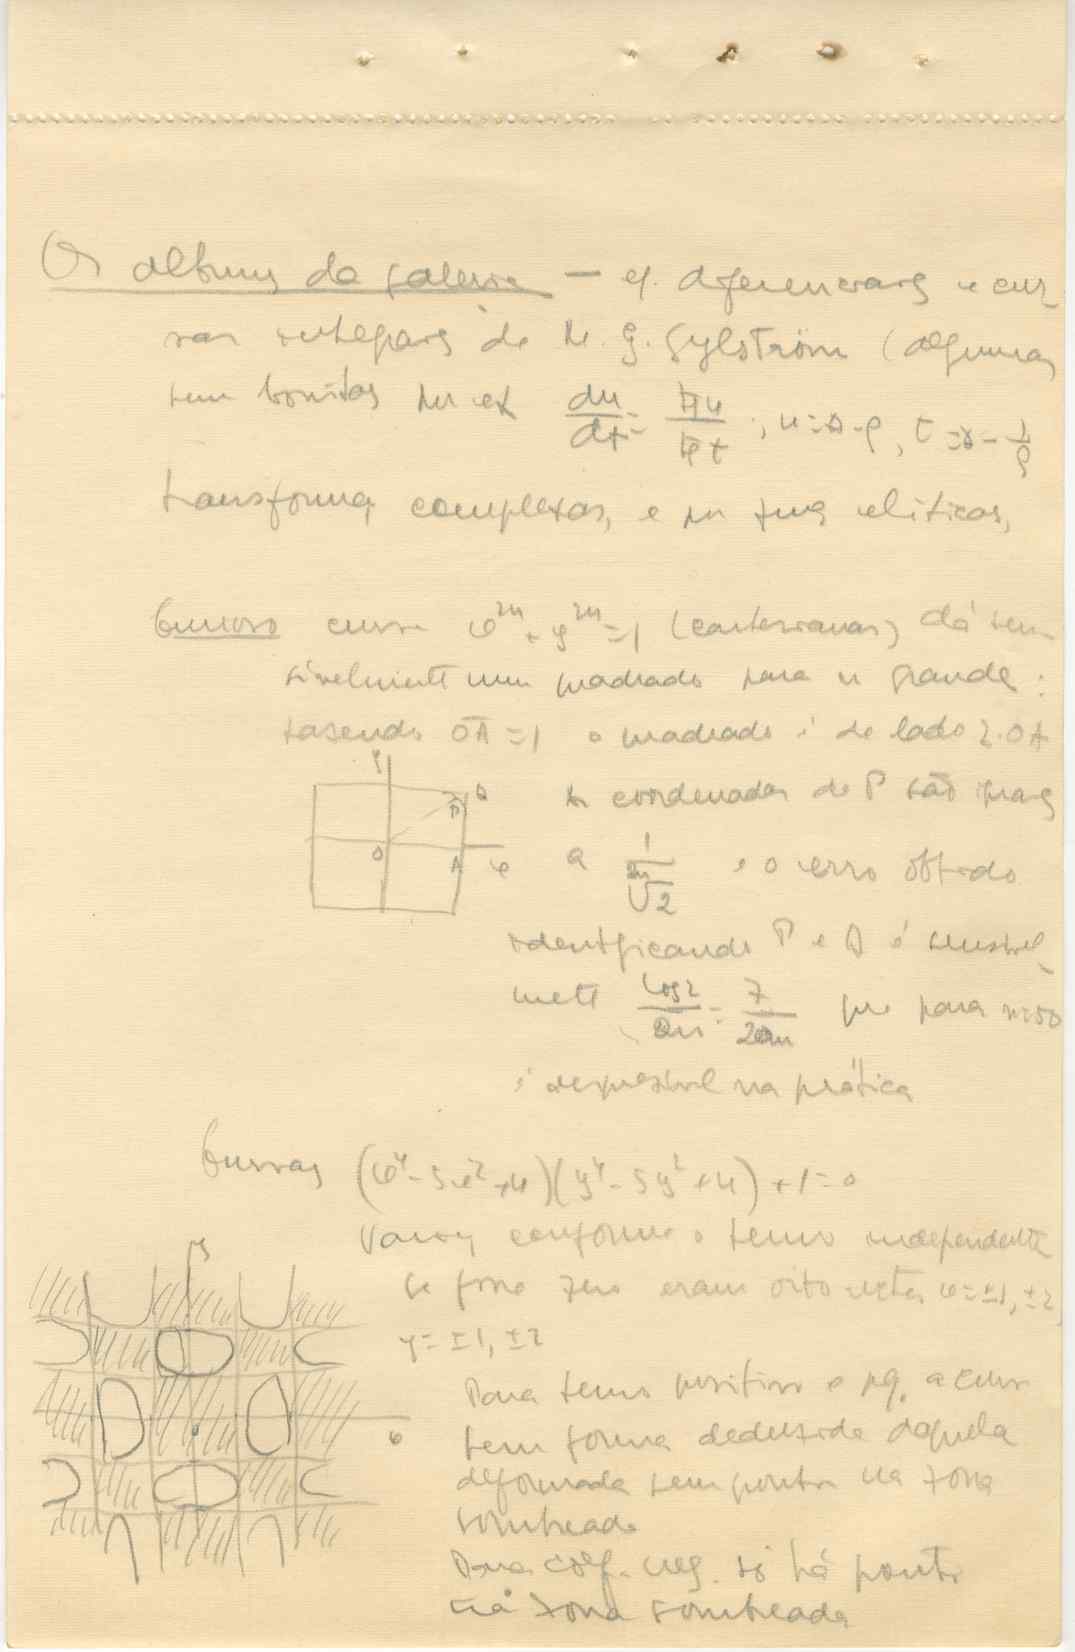 Os albuns da galeria — eq. diferenciais e cur-
vas integrais de
tem bonitas por ex du/dt = , u = s - ρ, t = s - 1/ρ
transforma complexas, e por funs elíticas,
Curioso curva x^2n + y^2n = 1 (cartesianas) dá sen-
sivelmente um quadrado para n grande:
fazendo OA = 1 o quadrado é de lado 2.OA
y
Q
P
O
A
x
As coordenadas de P são iguais
a 1/2n√2 e o erro obtido
identificando P e Q é sensivel-
mente log2/2n = 7/20n que para n=50
é desprezível na prática
Curvas (x^4 - 5x^2 + 4)(y^4 - 5y^2 + 4) + 1 = 0
Variam conforme o termo independente
Se fosse zero eram oito retas x = ±1, ±2,
y = ±1, ±2
y
x
Para termo positivo e pq. a curva
tem forma deduzida daquela
deformada sem pontos na zona
sombreada
Para coef. neg. só há pontos
na zona sombreada